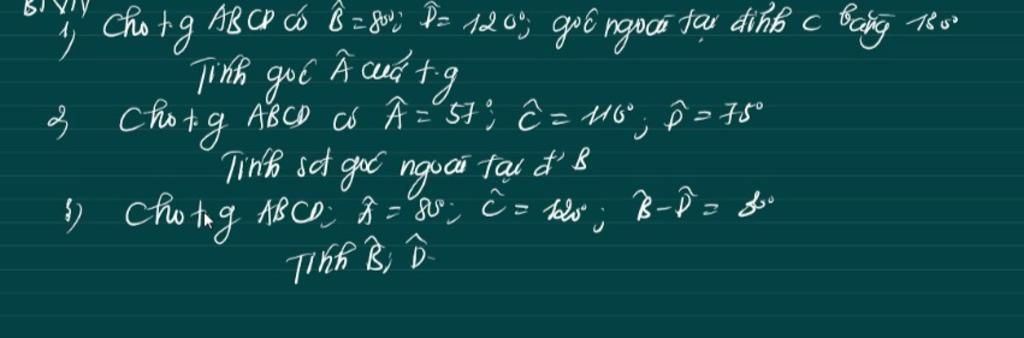 BTVN
1) Cho t.g ABCD có B̂ = 80°; D̂ = 120°; góc ngoài tại đỉnh C bằng 130°
Tính góc Â của t.g
2) Cho t.g ABCD có Â = 57°; Ĉ = 110°; D̂ = 75°
Tính sđ góc ngoài tại đ' B
3) Cho t.g ABCD; Â = 80°; Ĉ = 120°; B̂ - D̂ =
Tính B̂; D̂